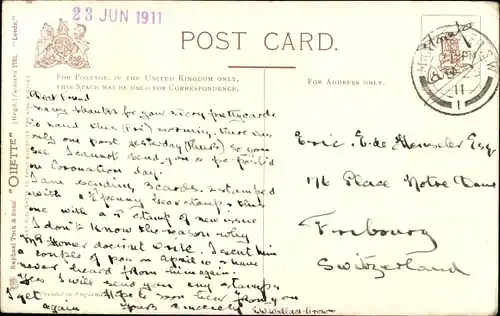 23 JUN 1911
POST CARD.
FOR POSTAGE, IN THE UNITED KINGDOM ONLY,
THIS SPACE MAY BE USED FOR CORRESPONDENCE.
FOR ADDRESS ONLY.
Raphael Tuck & Sons' "OILETTE" [Regd.] Postcard 1781. "Leeds."
Dear Friend
Many thanks for your very pretty cards
to hand this (Fri) morning, there was
only one post yesterday (Thurs) so you
see I cannot send you a p.c. postmarked
on Coronation day.
I am sending 3 cards, stamped
with ½ penny Seac stamp & this
one with a 1d stamp of new issue
I don't know the reason why
Mr Honer doesn't write. I sent him
couple of p.c.s on April 10 & have
never heard from him again.
Yes I will send you any stamps
I get Hope to soon hear from you
again Yours sincerely
Eric E. de Henseler Esq
176 Place Notre Dame
Fribourg
Switzerland